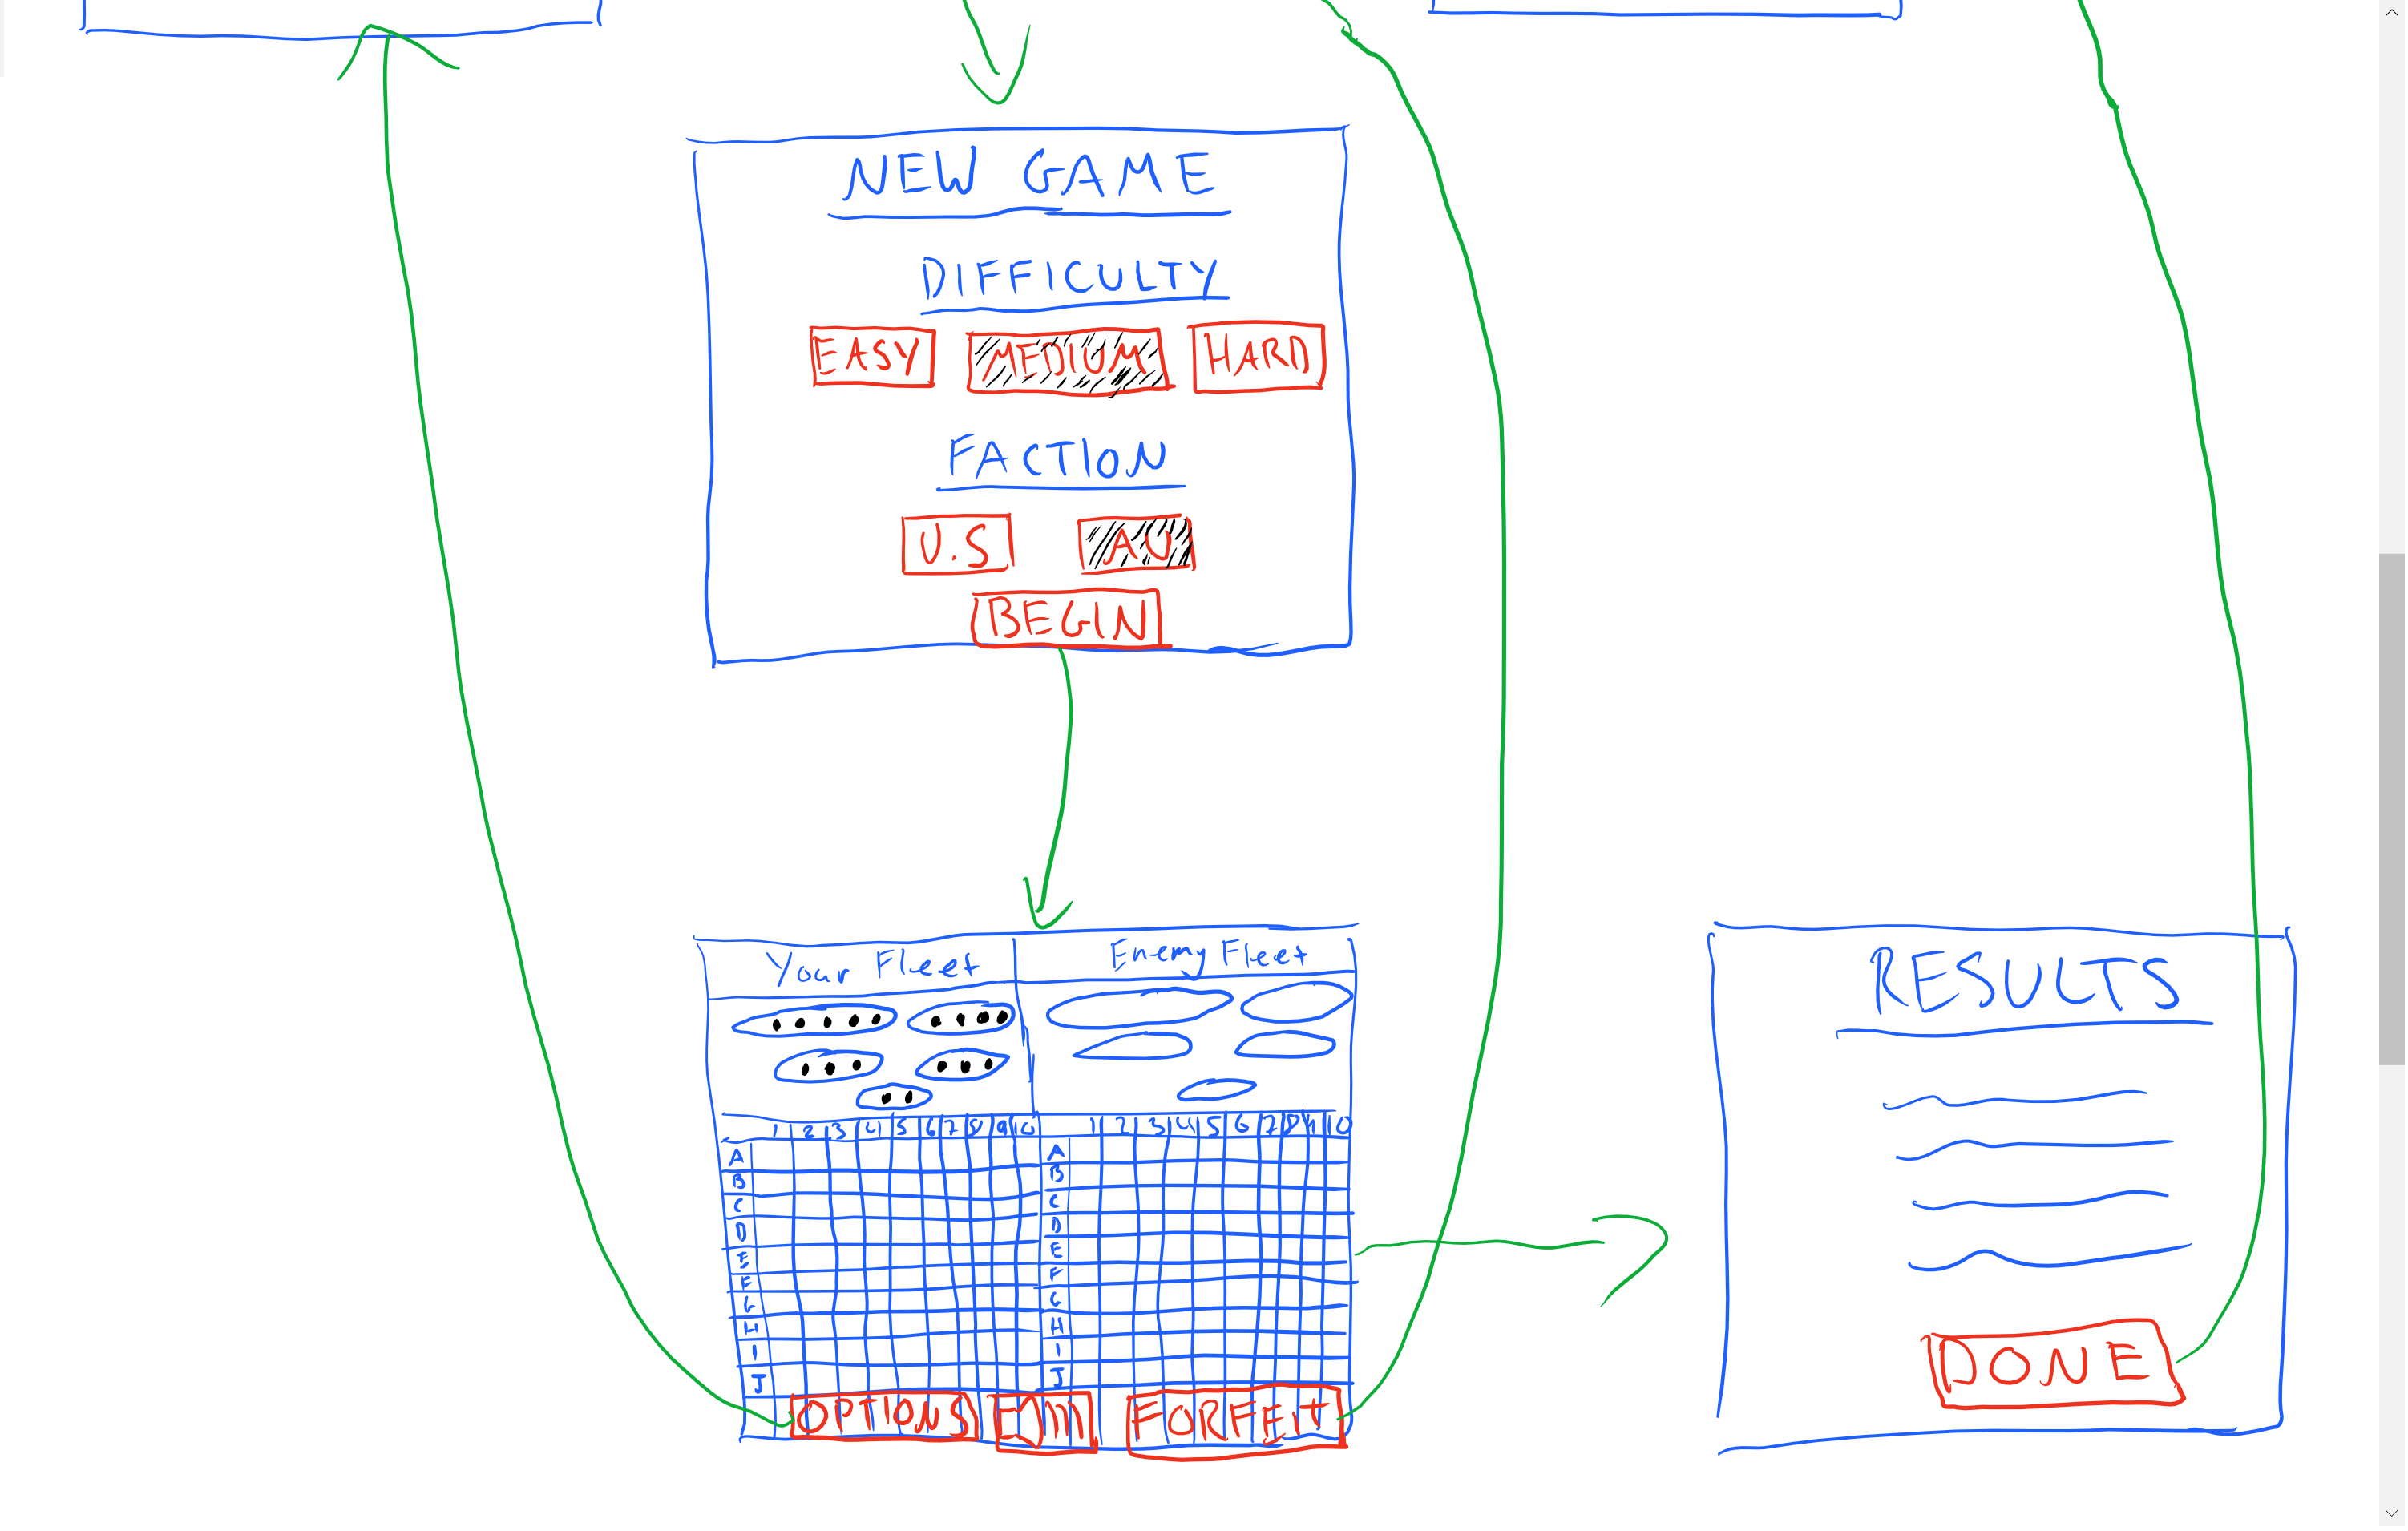 NEW GAME
DIFFICULTY
EASY MEDIUM HARD
FACTION
U.S
BEGIN
Your Fleet Enemy Fleet
1 2 3 4 5 6 7 8 9 10 1 2 3 4 5 6 7 8 9 10
A A
B B
C C
D D
E E
F F
G G
H H
I I
J J
OPTIONS FORFEIT
RESULTS
DONE